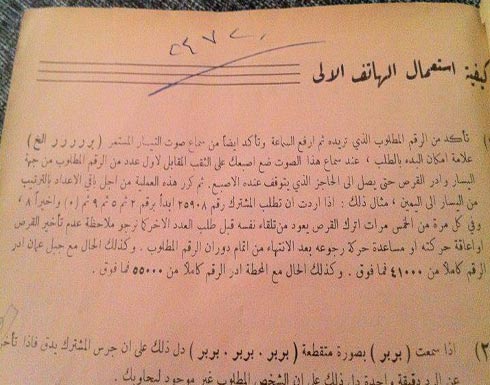 ٥٤٧٢٠
كيفية استعمال الهاتف الالي
تأكد من الرقم المطلوب الذي تريده ثم ارفع السماعة وتأكد ايضاً من سماع صوت التيار المستمر (بررررر الخ)
علامة امكان البدء بالطلب ، عند سماع هذا الصوت ضع اصبعك على الثقب المقابل لاول عدد من الرقم المطلوب من جهة
اليسار وادر القرص حتى يصل الى الحاجز الذي يتوقف عنده الاصبع. ثم كرر هذه العملية من اجل باقي الاعداد بالترتيب
من اليسار الى اليمين ، مثال ذلك : اذا اردت ان تطلب المشترك رقم ٢٥٩٠٨ ابدأ برقم ٢ ثم ٥ ثم ٩ ثم (٠) واخيراً ٨ ،
وفي كل مرة من الخمس مرات اترك القرص يعود من تلقاء نفسه قبل طلب العدد الاخر كما نرجو ملاحظة عدم تأخير القرص
او اعاقة حركته او مساعدة حركة رجوعه بعد الانتهاء من اتمام دوران الرقم المطلوب . وكذلك الحال مع جبل عمان ادر
الرقم كاملاً من ٤١٠٠٠ فما فوق . وكذلك الحال مع المحطة ادر الرقم كاملاً من ٥٥٠٠٠ فما فوق .
٢) اذا سمعت (بربر) بصورة متقطعة (بربر ، بربر ، بربر) دل ذلك على ان جرس المشترك يدق فاذا تأخر
عن الرد دقيقة واحدة دل ذلك على ان الشخص المطلوب غير موجود ليجاوبك .